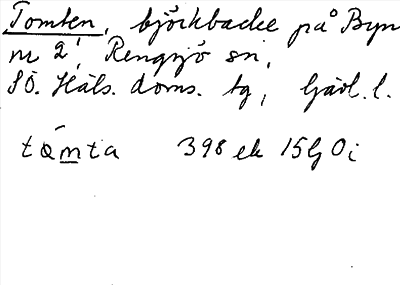 Tomten, björkbacke på Byn
nr 2, Rengsjö sn,
SÖ. Häls. doms. tg, Gävl. l.
tåmta 398 ek 15G Oi